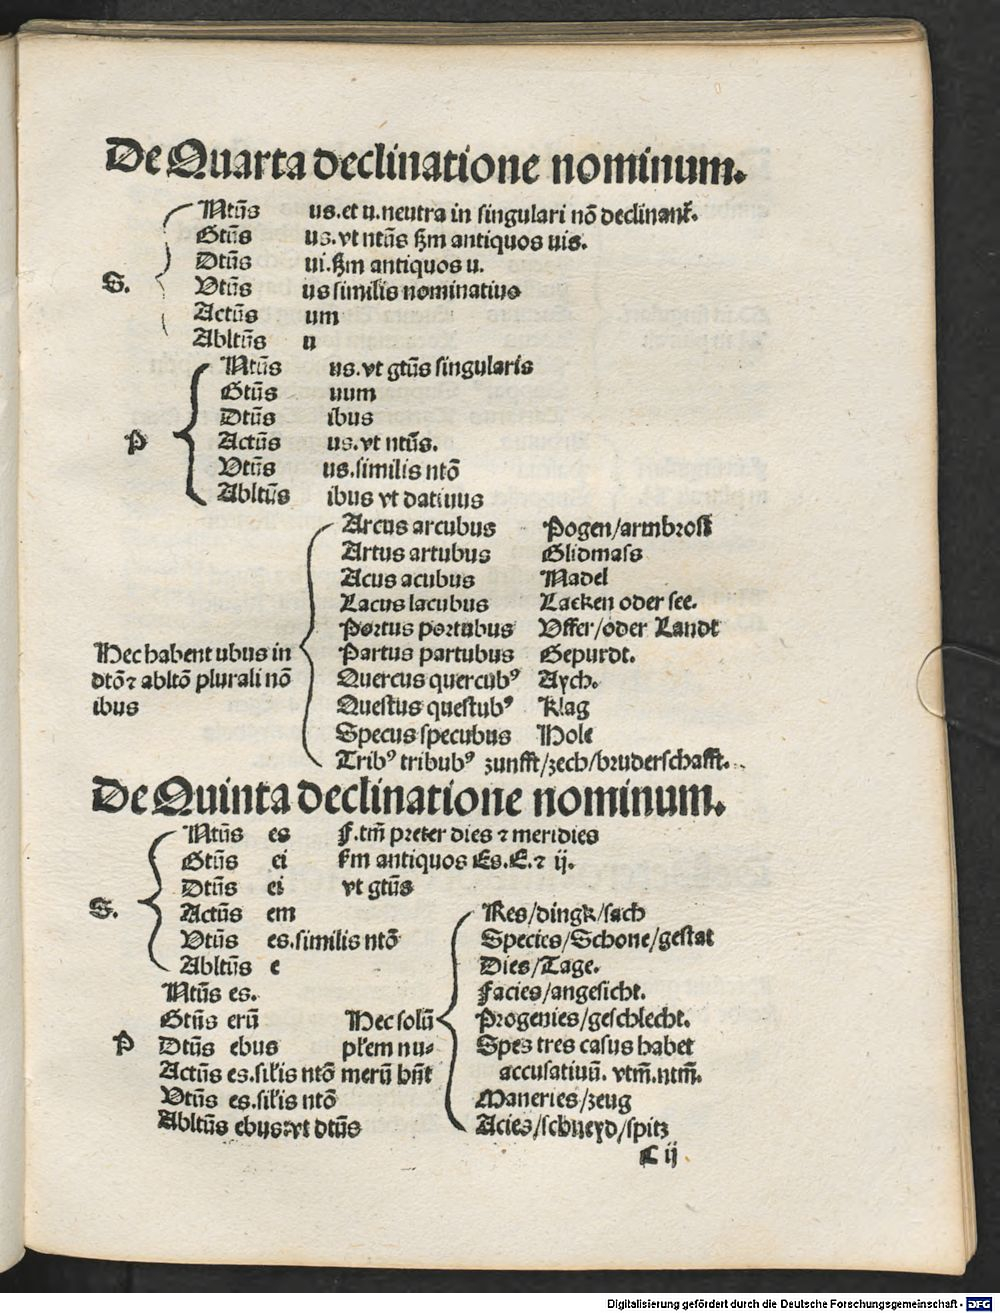 De Quarta declinatione nominum.
Ntūs us. et u. neutra in singulari nō declinant̄.
Gtūs us. vt ntūs ẜm antiquos uis.
Dtūs ui. ẜm antiquos u.
S. Vtūs us similis nominatiuo
Actūs um
Abltūs u
Ntūs us. vt gtūs singularis
Gtūs uum
Dtūs ibus
P Actūs us. vt ntūs.
Vtūs us. similis ntō
Abltūs ibus vt datiuus
Arcus arcubus Pogen/armbrost
Artus artubus Glidmass
Acus acubus Nadel
Lacus lacubus Lacken oder see.
Portus portubus Vffer/oder Landt
Hec habent ubus in Partus partubus Gepurdt.
dtō ⁊ abltō plurali nō Quercus quercubꝰ Aych.
ibus Questus questubꝰ Klag
Specus specubus Hole
Tribꝰ tribubꝰ zunfft/zech/bruderschafft.
De Quinta declinatione nominum.
Ntūs es f. tm̄ preter dies ⁊ meridies
Gtūs ei ẜm antiquos Es. E. ⁊ ij.
Dtūs ei vt gtūs
S. Actūs em Res/dingk/sach
Vtūs es. similis ntō Species/Schone/gestat
Abltūs e Dies/Tage.
Ntūs es. Facies/angesicht.
Gtūs erū Hec solū Progenies/geschlecht.
P Dtūs ebus pl̄em nu- Spes tres casus habet
Actūs es. sil̄is ntō merū hn̄t accusatiuū. vtm̄. ntm̄.
Vtūs es. sil̄is ntō Maneries/zeug
Abltūs ebus vt dtūs Acies/schneyd/spitz
C ij
Digitalisierung gefördert durch die Deutsche Forschungsgemeinschaft - DFG